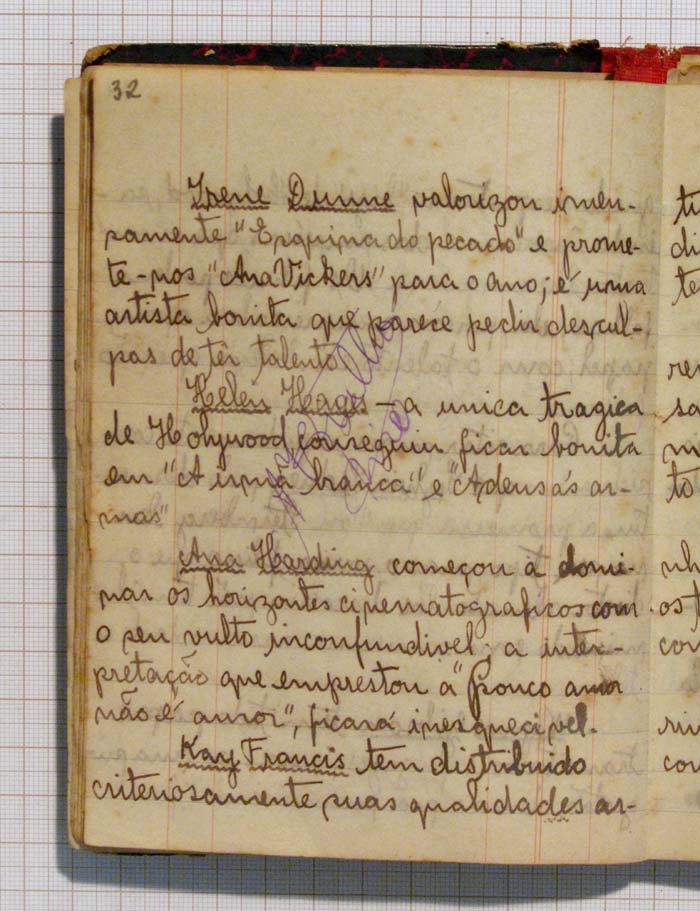 32
Irene Dunne valorizou imen-
samente "Esquina do pecado" e prome-
te-nos "Ana Vickers" para o ano; é uma
artista bonita que parece pedir descul-
pas de têr talento.
Helen Hages - a unica tragica
de Holywood conseguiu ficar bonita
em "A irmã branca" e "Adeus ás ar-
mas"
Ana Harding começou a domi-
nar os horizontes cinematograficos com
o seu vulto inconfundivel; a inter-
pretação que emprestou a "Pouco amor
não é amor", ficará inesquecivel.
Kay Francis tem distribuido
criteriosamente suas qualidades ar-